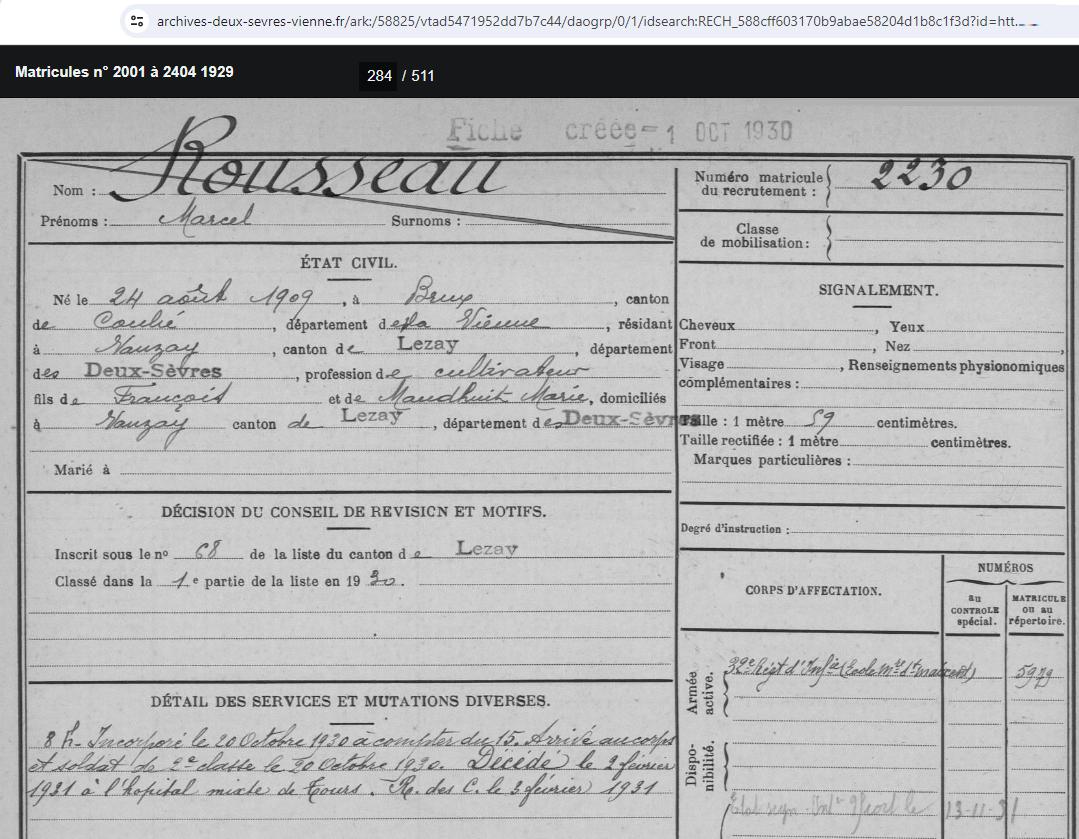 archives-deux-sevres-vienne.fr/ark:/58825/vtad5471952dd7b7c44/daogrp/0/1/idsearch:RECH_588cff603170b9abae58204d1b8c1f3d?id=htt...
Matricules n° 2001 à 2404 1929
284 / 511
Fiche créée - 1 OCT 1930
Nom : Rousseau
Prénoms : Marcel Surnoms :
Numéro matricule du recrutement : 2230
Classe de mobilisation :
ÉTAT CIVIL.
Né le 24 août 1909, à Brux, canton
de Couhé, département de la Vienne, résidant
à Vanzay, canton de Lezay, département
des Deux-Sèvres, profession de cultivateur
fils de François et de Maudhuit Marie, domiciliés
à Vanzay canton de Lezay, département des Deux-Sèvres
Marié à
SIGNALEMENT.
Cheveux , Yeux
Front , Nez ,
Visage , Renseignements physionomiques
complémentaires :
Taille : 1 mètre 59 centimètres.
Taille rectifiée : 1 mètre centimètres.
Marques particulières :
Degré d'instruction :
DÉCISION DU CONSEIL DE REVISION ET MOTIFS.
Inscrit sous le no 68 de la liste du canton de Lezay
Classé dans la 1e partie de la liste en 1930.
CORPS D'AFFECTATION.
NUMÉROS
au CONTROLE spécial.
MATRICULE ou au répertoire.
Armée active.
32e Régt d'Infie (Ecole Mre St Maixent) 5979
Disponibilité.
13-11-31
DÉTAIL DES SERVICES ET MUTATIONS DIVERSES.
Incorporé le 20 Octobre 1930 à compter du 15. Arrivé au corps
et soldat de 2e classe le 20 Octobre 1930. Décédé le 2 février
1931 à l'hopital mixte de Tours. R. des C. le 3 février 1931